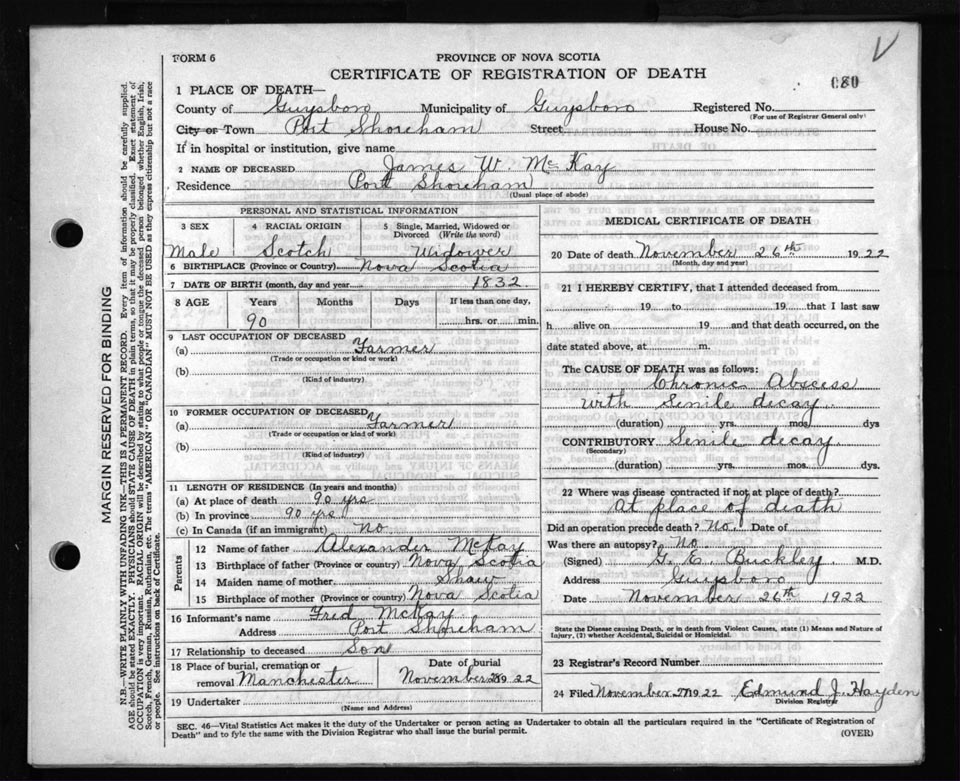 FORM 6
PROVINCE OF NOVA SCOTIA
CERTIFICATE OF REGISTRATION OF DEATH
080
1 PLACE OF DEATH—
County of Guysboro Municipality of Guysboro Registered No.
(For use of Registrar General only)
City or Town Port Shoreham Street House No.
If in hospital or institution, give name
2 NAME OF DECEASED James W. McKay
Residence Port Shoreham
(Usual place of abode)
PERSONAL AND STATISTICAL INFORMATION
3 SEX 4 RACIAL ORIGIN 5 Single, Married, Widowed or Divorced (Write the word)
Male Scotch Widower
6 BIRTHPLACE (Province or Country) Nova Scotia
7 DATE OF BIRTH (month, day and year) 1832
8 AGE Years Months Days If less than one day,
90 hrs. or min.
9 LAST OCCUPATION OF DECEASED
(a) Farmer
(Trade or occupation or kind or work)
(b)
(Kind of industry)
10 FORMER OCCUPATION OF DECEASED
(a) Farmer
(Trade or occupation or kind of work)
(b)
(Kind of industry)
11 LENGTH OF RESIDENCE (In years and months)
(a) At place of death 90 yrs
(b) In province 90 yrs
(c) In Canada (if an immigrant) no
Parents
12 Name of father Alexander McKay
13 Birthplace of father (Province or country) Nova Scotia
14 Maiden name of mother Shaw
15 Birthplace of mother (Province or country) Nova Scotia
16 Informant's name Fred McKay
Address Port Shoreham
17 Relationship to deceased Son
18 Place of burial, cremation or removal Manchester Date of burial November 28 1922
19 Undertaker
(Name and Address)
MEDICAL CERTIFICATE OF DEATH
20 Date of death November 26th 1922
(Month, day and year)
21 I HEREBY CERTIFY, that I attended deceased from
19 to 19 that I last saw
h alive on 19 and that death occurred, on the
date stated above, at m.
The CAUSE OF DEATH was as follows:
Chronic Abscess
with Senile decay
(duration) yrs. mos. dys
CONTRIBUTORY Senile decay
(Secondary)
(duration) yrs. mos. dys.
22 Where was disease contracted if not at place of death?
At place of death
Did an operation precede death? No Date of
Was there an autopsy? No
(Signed) G. E. Buckley M.D.
Address Guysboro
Date November 26th 1922
State the Disease causing Death, or in death from Violent Causes, state (1) Means and Nature of
Injury, (2) whether Accidental, Suicidal or Homicidal.
23 Registrar's Record Number
24 Filed November 27 1922 Edmund J. Hayden
Division Registrar
SEC. 46—Vital Statistics Act makes it the duty of the Undertaker or person acting as Undertaker to obtain all the particulars required in the "Certificate of Registration of
Death" and to fyle the same with the Division Registrar who shall issue the burial permit.
(OVER)
MARGIN RESERVED FOR BINDING
N.B.—WRITE PLAINLY WITH UNFADING INK—THIS IS A PERMANENT RECORD. Every item of information should be carefully supplied.
AGE should be stated EXACTLY. PHYSICIANS should STATE CAUSE OF DEATH in plain terms, so that it may be properly classified. Exact statement of
OCCUPATION is very important. RACIAL ORIGIN will be described by stating to what people or tongue the deceased person belonged whether English, Irish,
Scotch, French, German, Russian, Ruthenian, etc. The terms "AMERICAN" or "CANADIAN" MUST NOT BE USED as they express citizenship but not a race
or people. See instructions on back of Certificate.